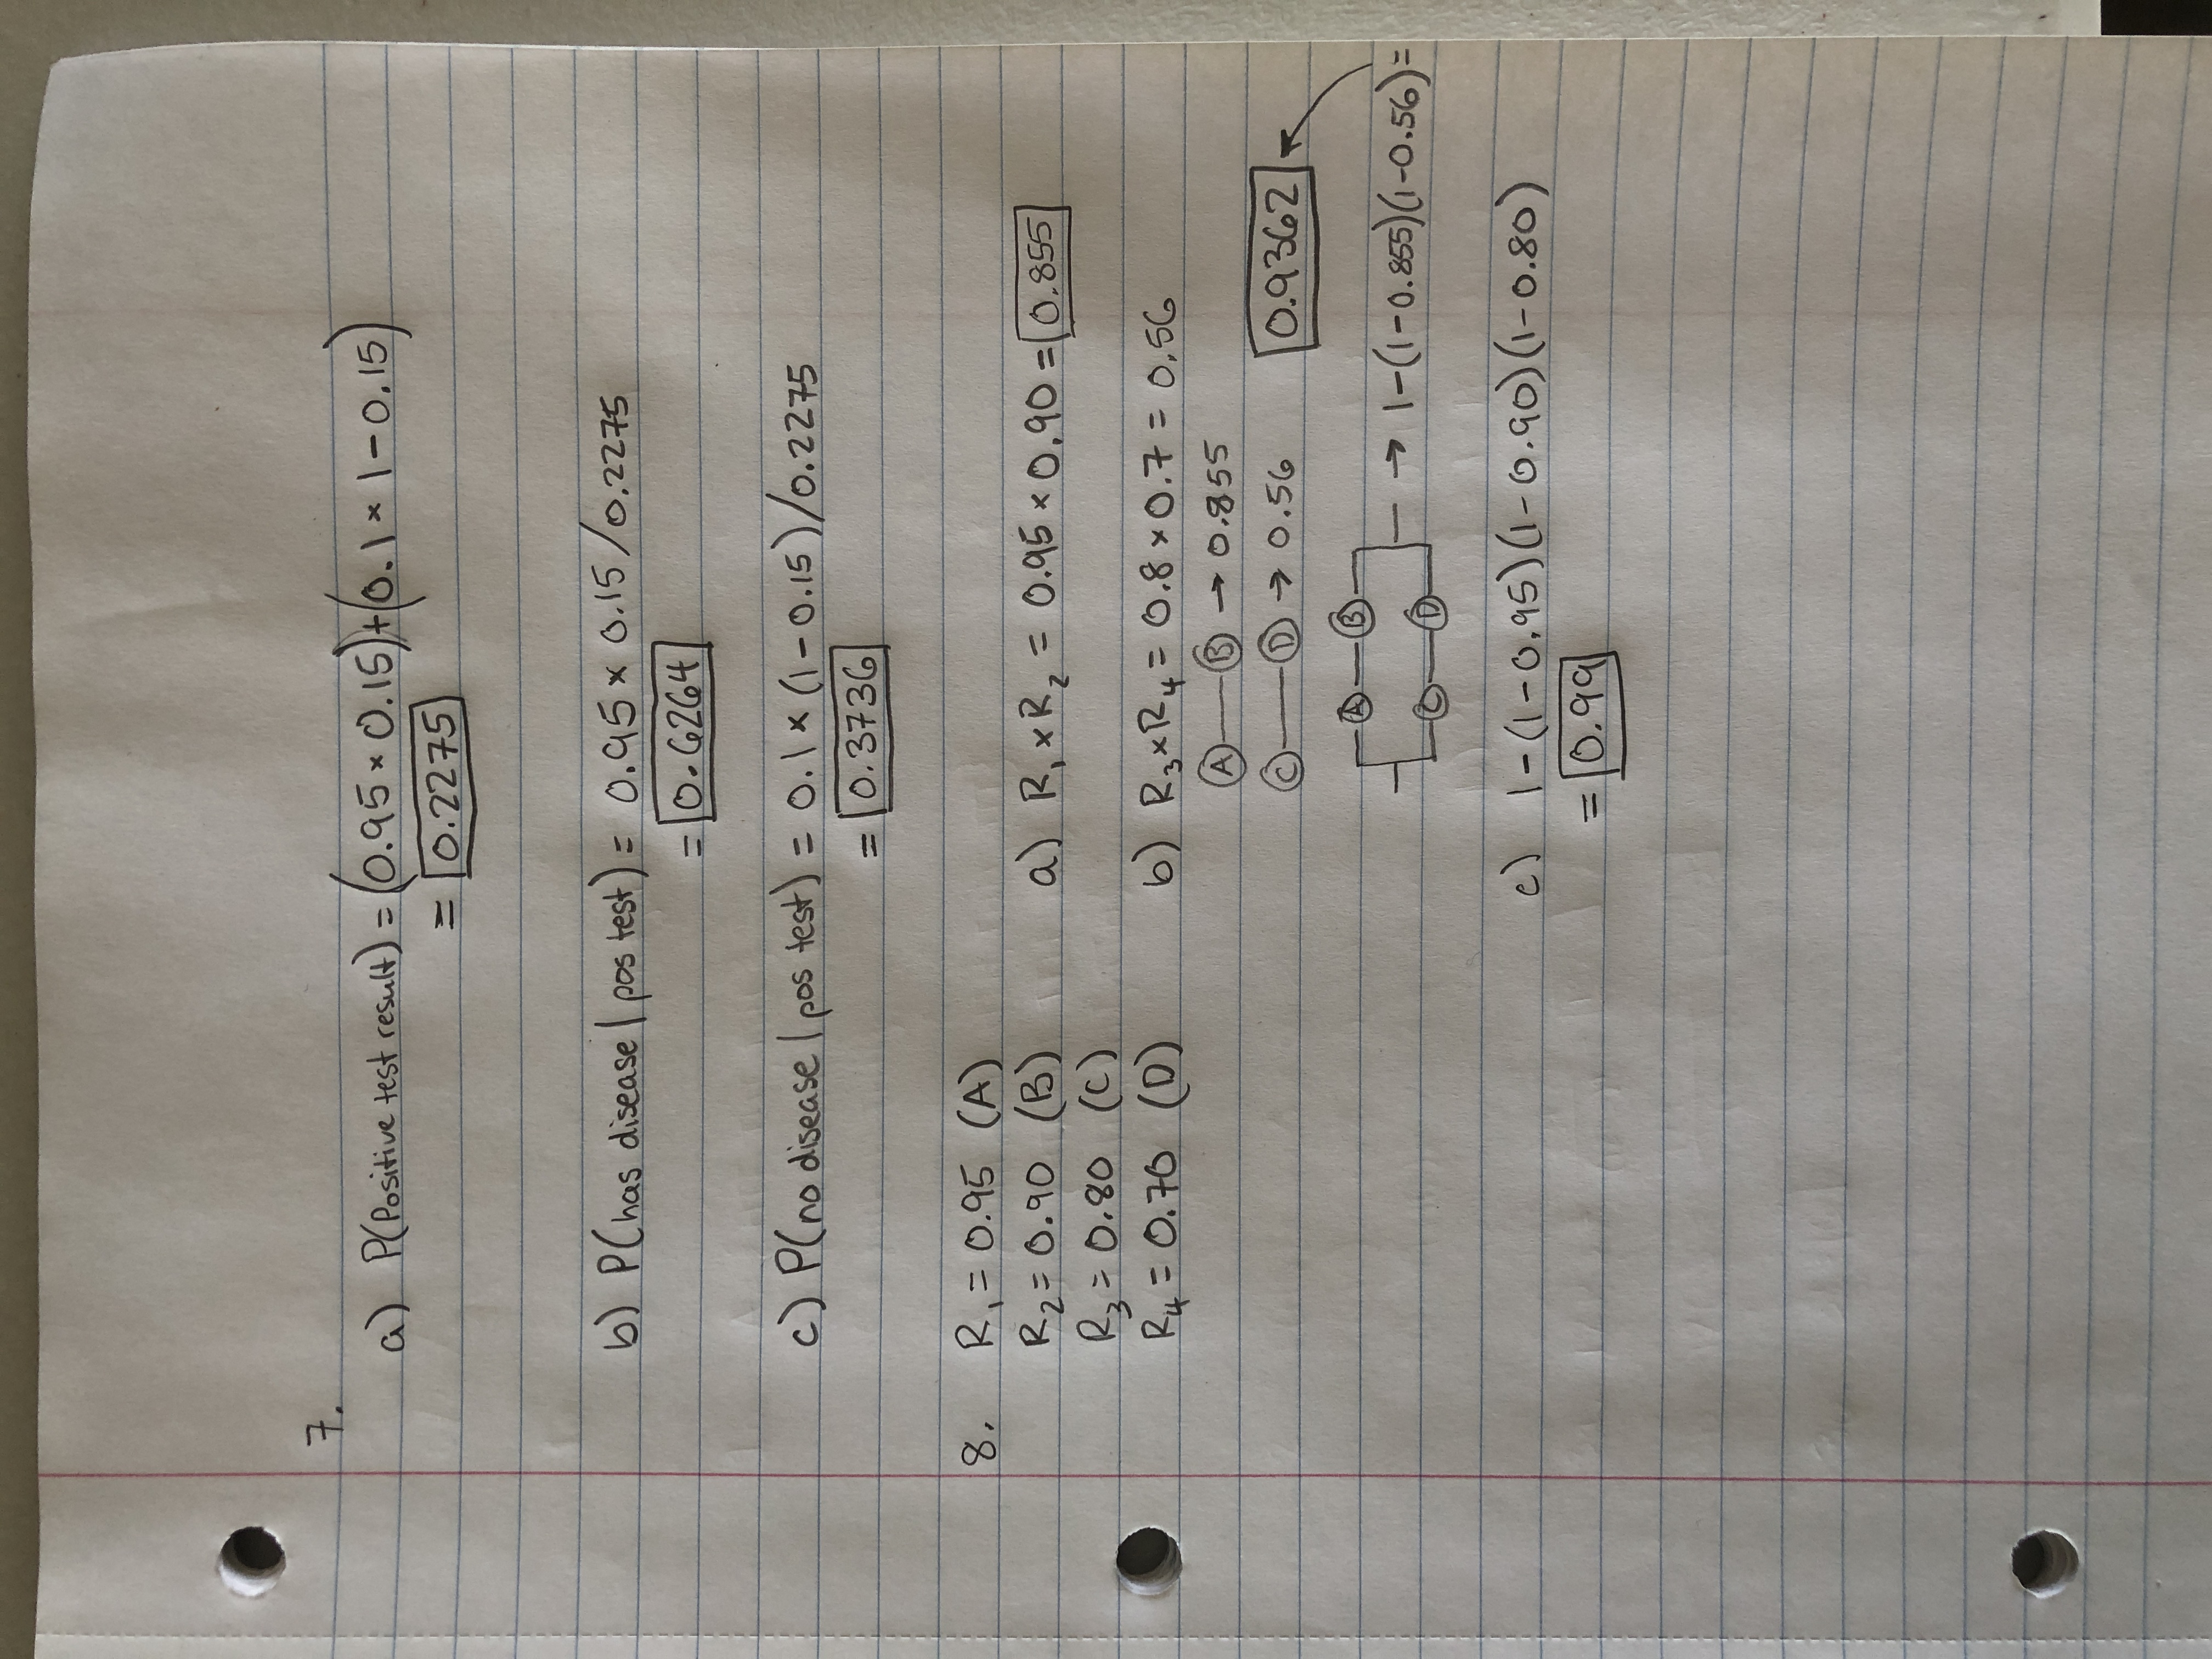 7.
a) P(Positive test result) = (0.95 × 0.15) + (0.1 × 1 - 0.15)
= 0.2275
b) P(has disease | pos test) = 0.95 × 0.15 / 0.2275
= 0.6264
c) P(no disease | pos test) = 0.1 × (1 - 0.15) / 0.2275
= 0.3736
8. R₁ = 0.95 (A)
R₂ = 0.90 (B)
R₃ = 0.80 (C)
R₄ = 0.70 (D)
a) R₁ × R₂ = 0.95 × 0.90 = 0.855
b) R₃ × R₄ = 0.8 × 0.7 = 0.56
A — B → 0.855
C — D → 0.56
A — B
C — D
→ 1 - (1 - 0.855)(1 - 0.56) =
0.9362
c) 1 - (1 - 0.95)(1 - 0.90)(1 - 0.80)
= 0.99